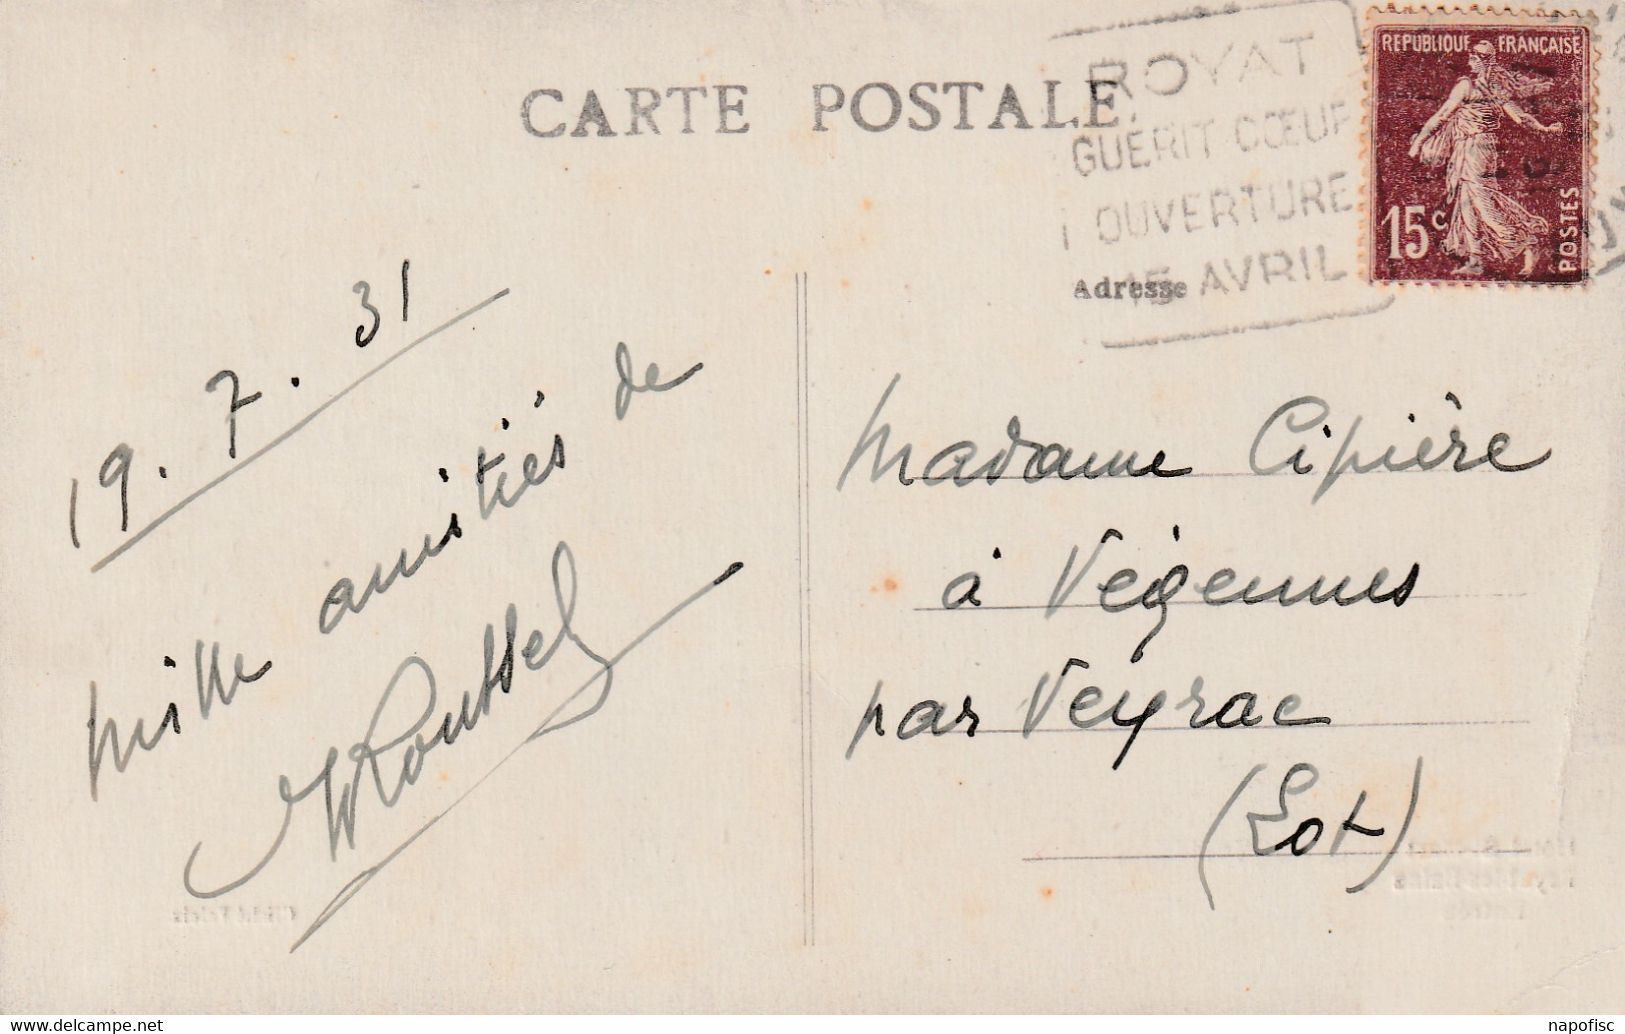 CARTE POSTALE
ROYAT
GUÉRIT CŒUR
OUVERTURE
15 AVRIL
REPUBLIQUE FRANÇAISE
15c
POSTES
Adresse
19.7.31
mille amitiés de
Roussel
Madame Cipière
à Végennes
par Veyrac
(Lot)
www.delcampe.net
napofisc